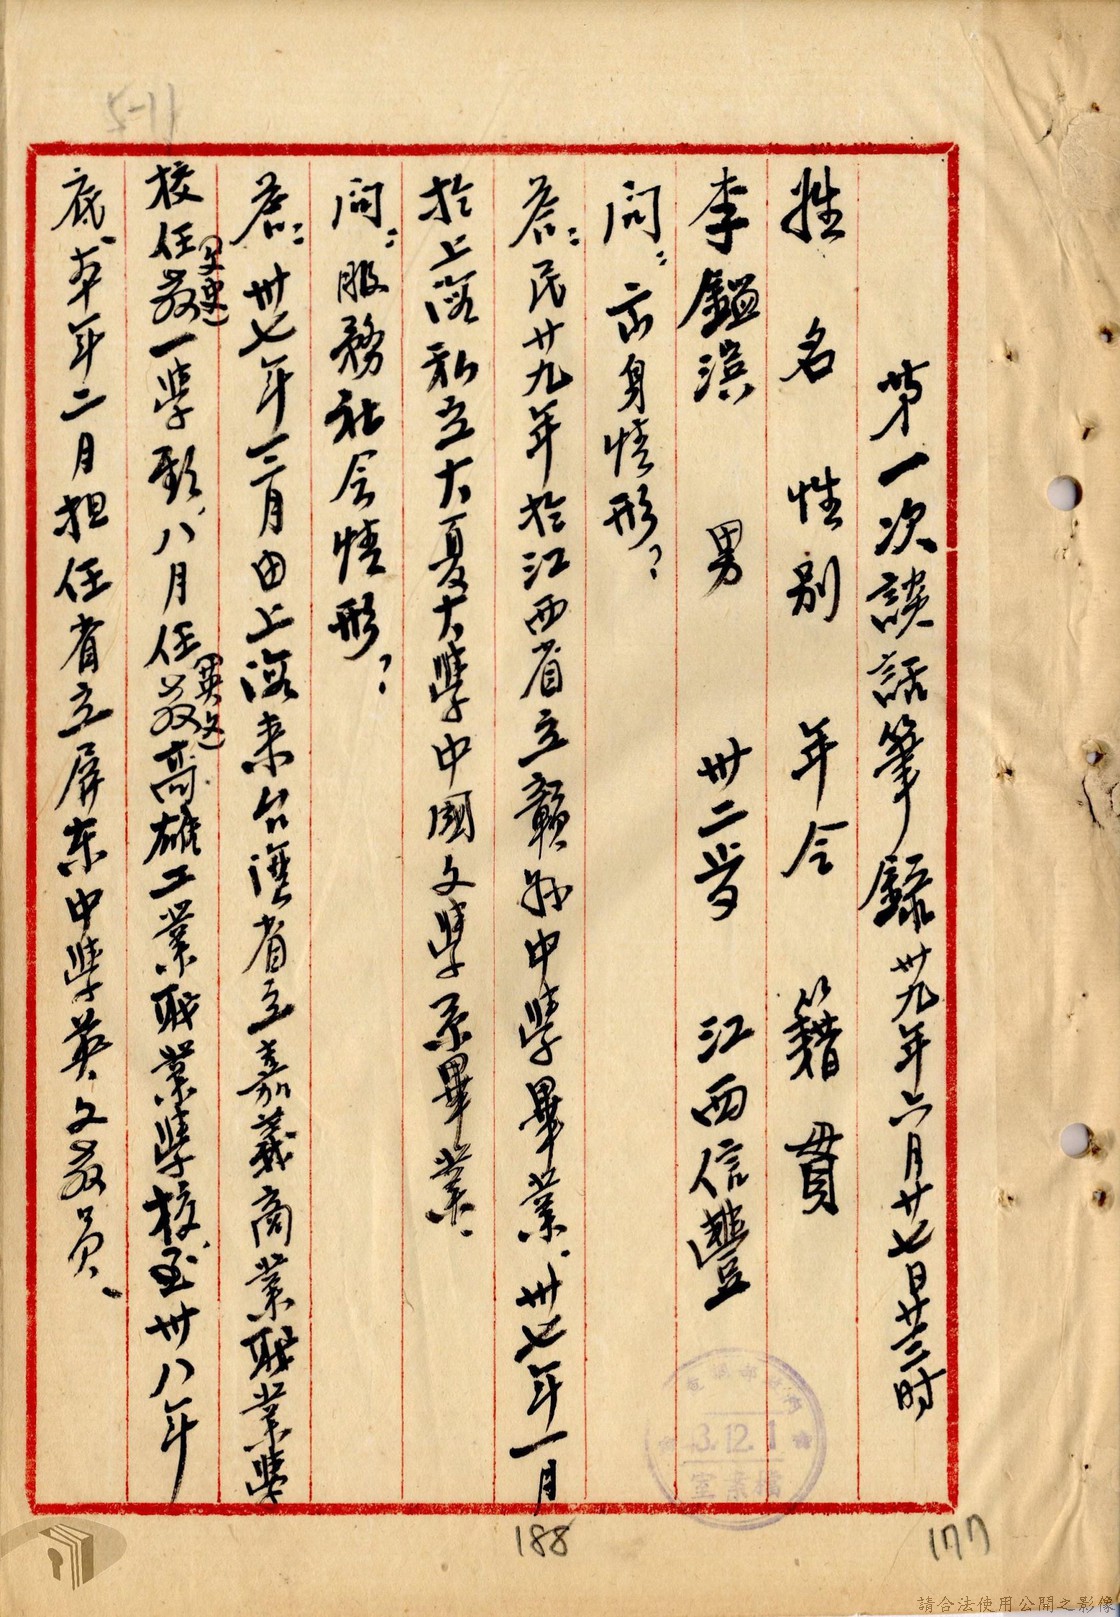 第一次談話筆錄 卅九年六月廿七日廿三时
姓名 性別 年令 籍貫
李鎰滨 男 卅二岁 江西信豐
问：出身情形？
答：民廿九年於江西省立贛县中學畢業、卅七年一月
於上海私立大夏大學中國文學系畢業、
问：服務社会情形？
答：卅七年三月由上海来台灣省立嘉義商業职業學
校任教（文史）一學期、八月任教（英文）高雄工業职業學校、至卅八年
底、本年二月担任省立屏东中學英文教員、
3.12.1
檔案室
188
177
11-5
請合法使用公開之影像